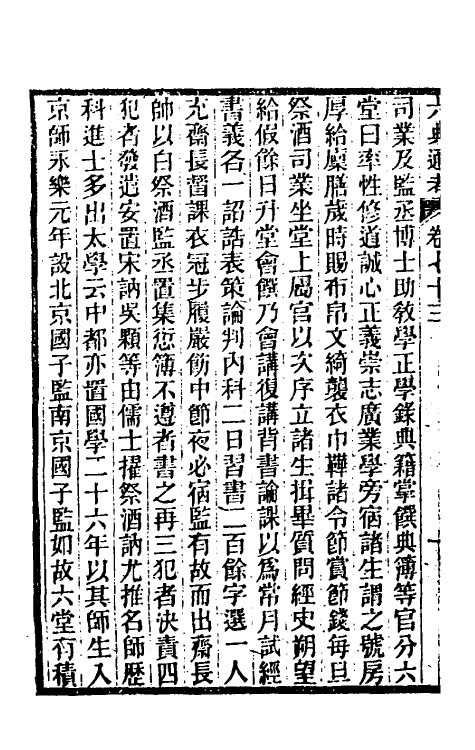 六典通考 卷七十三
司業及監丞博士助教學正學錄典籍掌饌典簿等官分六
堂曰率性修道誠心正義崇志廣業學旁宿諸生謂之號房
厚給廩膳歲時賜布帛文綺襲衣巾鞾諸令節賞節錢每旦
祭酒司業坐堂上屬官以次序立諸生揖畢質問經史朔望
給假餘日升堂會饌乃會講復講背書論課以爲常月試經
書義各一詔誥表策論判內科二日習書二百餘字選一人
充齋長督課衣冠步履嚴飭中節夜必宿監有故而出齋長
師以白祭酒監丞置集愆簿不遵者書之再三犯者決責四
犯者發遣安置宋訥吳顒等由儒士擢祭酒訥尤推名師歷
科進士多出太學云中都亦置國學二十六年以其師生入
京師永樂元年設北京國子監南京國子監如故六堂有積